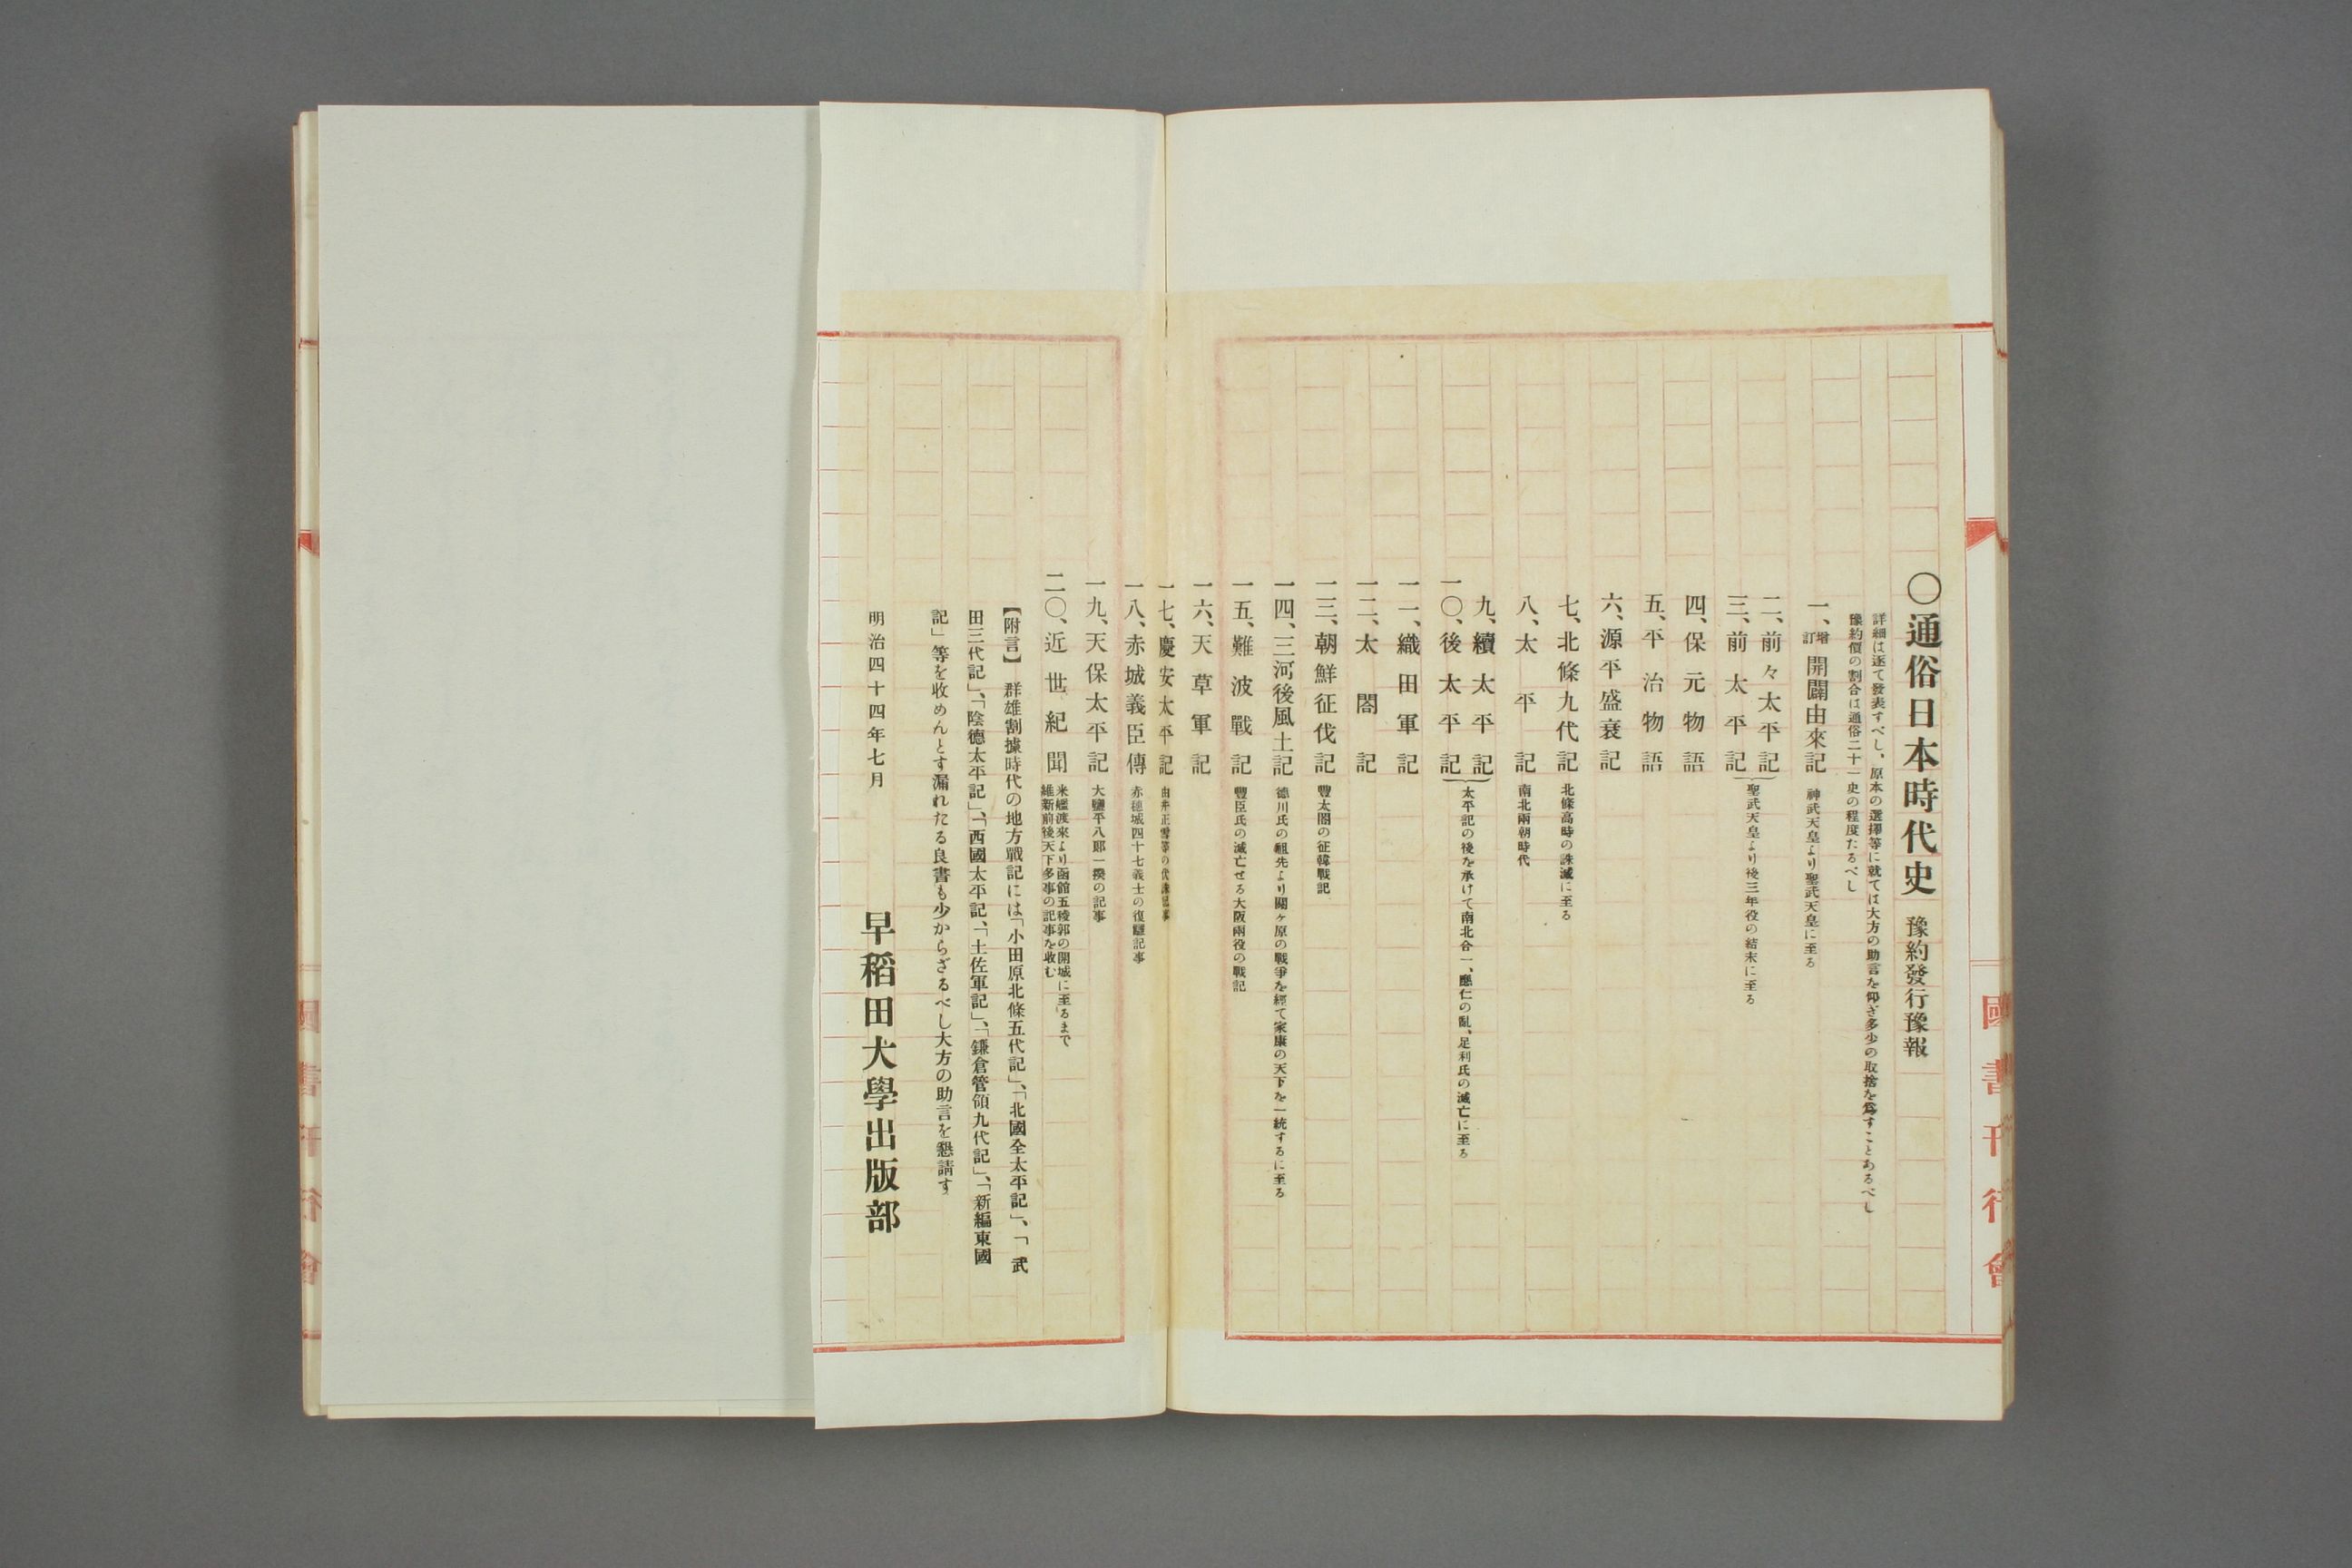 〇通俗日本時代史 豫約發行豫報
詳細は逐て發表すべし、原本の選擇等に就ては大方の助言を仰ぎ多少の取捨を爲すことあるべし
豫約價の割合は通俗二十一史の程度たるべし
一、增訂 開闢由來記 神武天皇より聖武天皇に至る
二、前々太平記
三、前太平記 聖武天皇より後三年役の結末に至る
四、保元物語
五、平治物語
六、源平盛衰記
七、北條九代記 北條高時の誅滅に至る
八、太平記 南北兩朝時代
九、續太平記
一〇、後太平記 太平記の後を承けて南北合一、應仁の亂、足利氏の滅亡に至る
一一、織田軍記
一二、太閤記
一三、朝鮮征伐記 豐太閤の征韓戰記
一四、三河後風土記 德川氏の祖先より關ヶ原の戰爭を經て家康の天下を一統するに至る
一五、難波戰記 豐臣氏の滅亡せる大阪兩役の戰記
一六、天草軍記
一七、慶安太平記 由井正雪等の
一八、赤城義臣傳 赤穗城四十七義士の復讐記事
一九、天保太平記 大鹽平八郞一揆の記事
二〇、近世紀聞 米艦渡來より函館五稜郭の開城に至るまで
維新前後天下多事の記事を收む
【附言】 群雄割據時代の地方戰記には「小田原北條五代記」、「北國全太平記」、「武
田三代記」、「陰德太平記」、「西國太平記、「土佐軍記」、「鎌倉管領九代記」、「新編東國
記」等を收めんとす漏れたる良書も少からざるべし大方の助言を懇請す
明治四十四年七月
早稻田大學出版部
國書刊行會